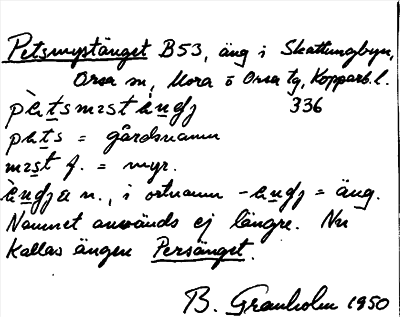 Petsmystänget B53, äng i Skattungbyn,
Orsa sn, Mora o Orsa tg, Kopparb. l.
336
pæts = gårdsnamn
f. = myr.
n., i ortnamn = äng.
Namnet används ej längre. Nu
kallas ängen Persänget.
B. Granholm 1950